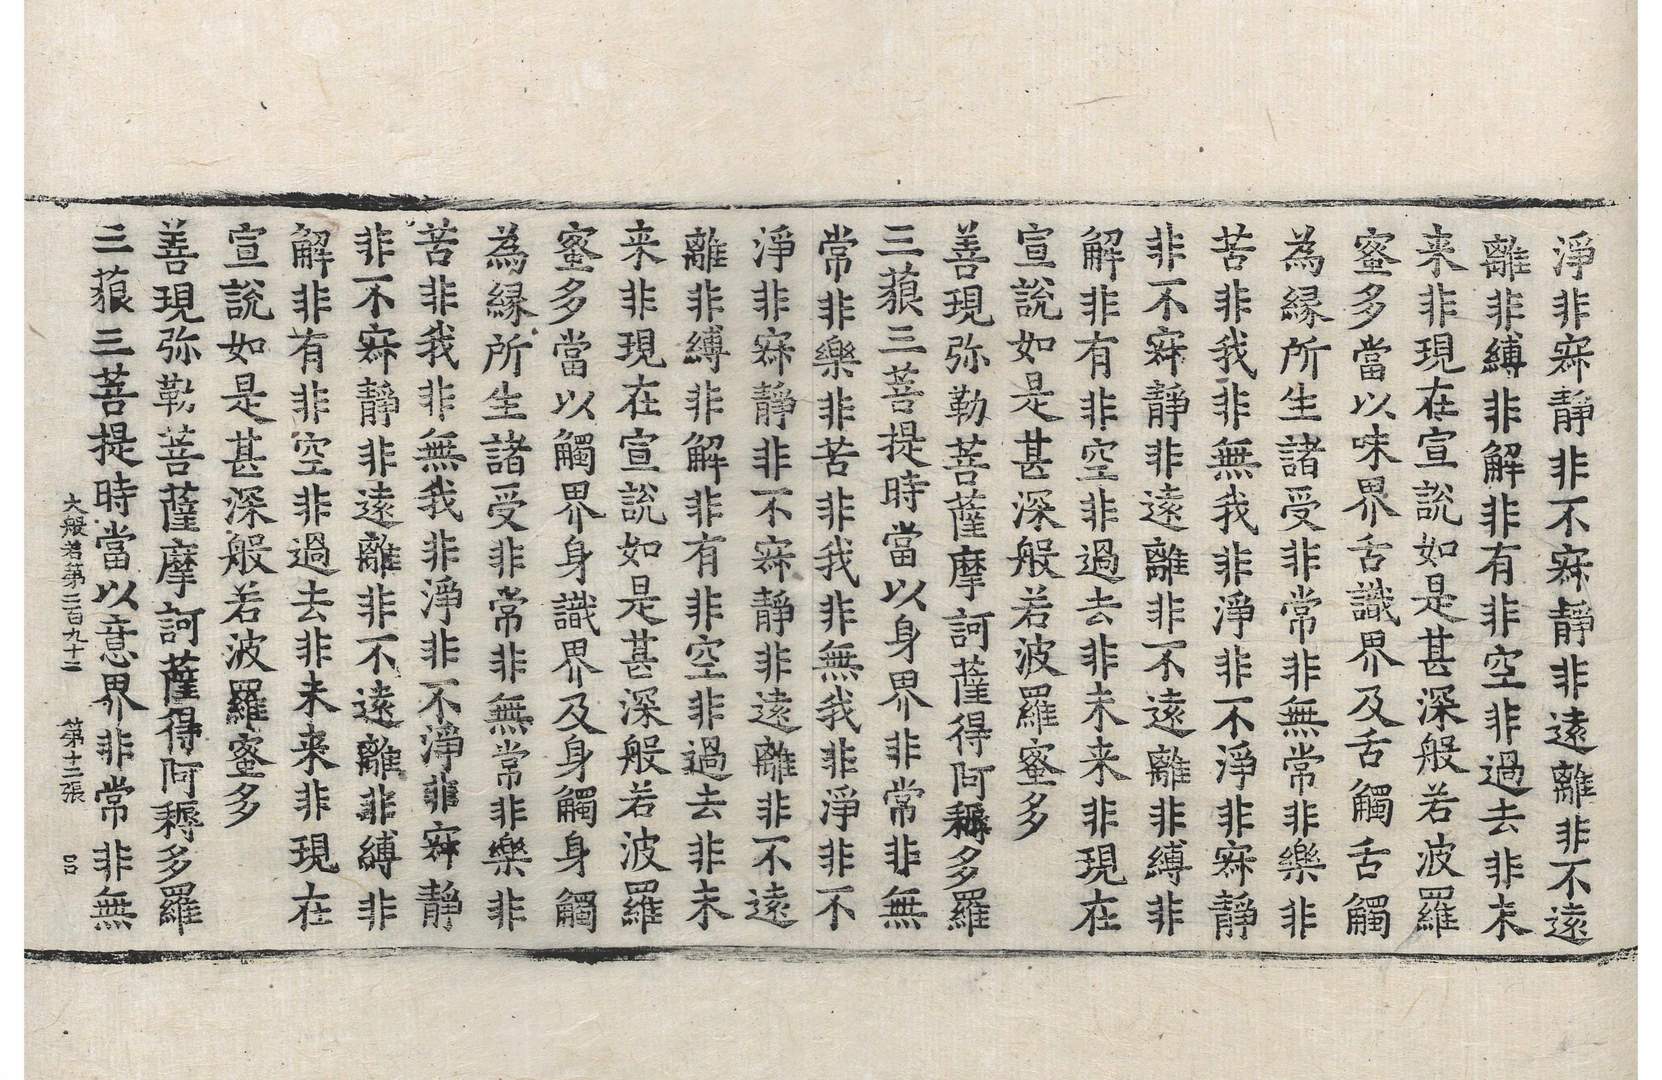 淨非寂靜非不寂靜非遠離非不遠
離非縛非解非有非空非過去非未
来非現在宣說如是甚深般若波羅
蜜多當以味界舌識界及舌觸舌觸
為縁所生諸受非常非無常非樂非
苦非我非無我非淨非不淨非寂靜
非不寂靜非遠離非不遠離非縛非
解非有非空非過去非未来非現在
宣說如是甚深般若波羅蜜多
善現弥勒菩薩摩訶薩得阿耨多羅
三藐三菩提時當以身界非常非無
常非樂非苦非我非無我非淨非不
淨非寂靜非不寂靜非遠離非不遠
離非縛非解非有非空非過去非未
来非現在宣說如是甚深般若波羅
蜜多當以觸界身識界及身觸身觸
為縁所生諸受非常非無常非樂非
苦非我非無我非淨非不淨非寂靜
非不寂靜非遠離非不遠離非縛非
解非有非空非過去非未来非現在
宣說如是甚深般若波羅蜜多
善現弥勒菩薩摩訶薩得阿耨多羅
三藐三菩提時當以意界非常非無
大般若第二百九十二 第十二張 吕